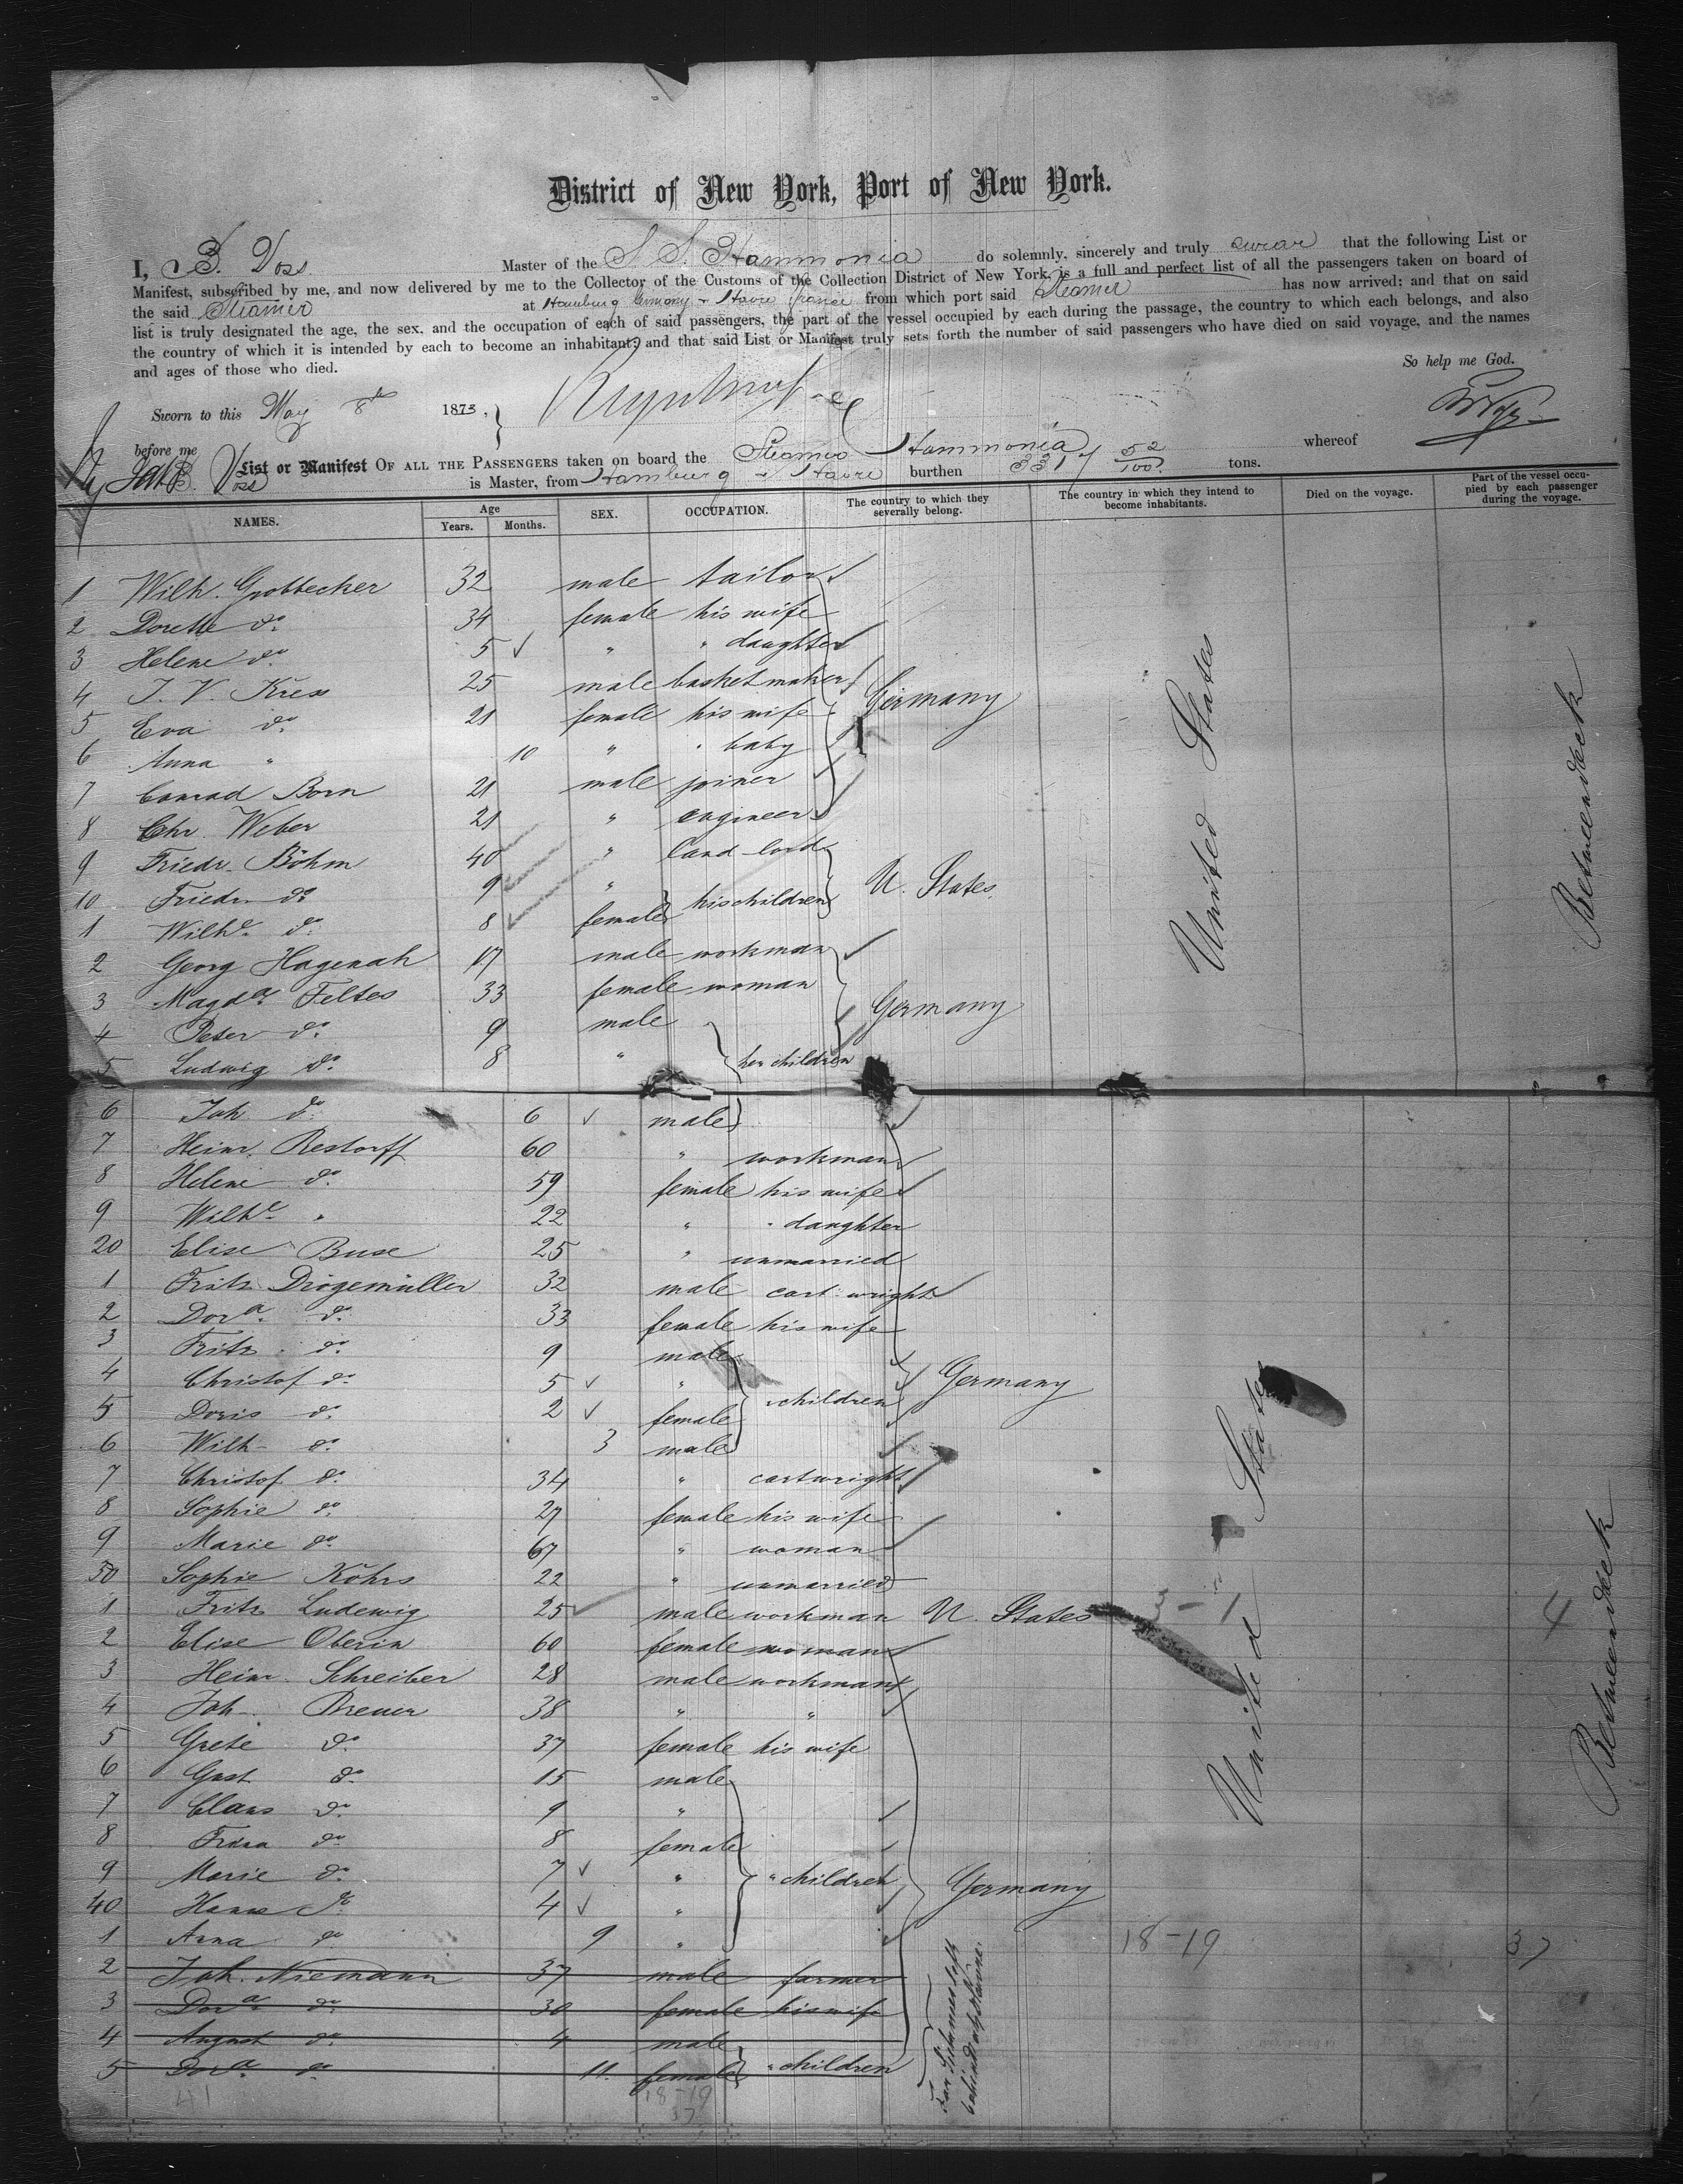 District of New York, Port of New York.
I, B. Voss Master of the S. S. Hammonia do solemnly, sincerely and truly swear that the following List or
Manifest, subscribed by me, and now delivered by me to the Collector of the Customs of the Collection District of New York, is a full and perfect list of all the passengers taken on board of
the said Steamer at Hamburg Germany & Havre France from which port said Steamer has now arrived; and that on said
list is truly designated the age, the sex, and the occupation of each of said passengers, the part of the vessel occupied by each during the passage, the country to which each belongs, and also
the country of which it is intended by each to become an inhabitant; and that said List or Manifest truly sets forth the number of said passengers who have died on said voyage, and the names
and ages of those who died.
So help me God.
Sworn to this May 8th 1873,
before me
List or Manifest OF ALL THE PASSENGERS taken on board the Steamer Hammonia whereof
B. Voss is Master, from Hamburg & Havre burthen 52/100 tons.
NAMES. Age Years. Months. SEX. OCCUPATION. The country to which they severally belong. The country in which they intend to become inhabitants. Died on the voyage. Part of the vessel occupied by each passenger during the voyage.
1 Wilh. Grobbecker 32 male tailor
2 Dorette do. 34 female his wife
3 Helene do. 5 " " daughter
4 J. V. Kress 25 male basket maker Germany
5 Eva do. 21 female his wife
6 Anna " 10 " " baby
7 Conrad Born 21 male joiner
8 Chr. Weber 21 " engineer
9 Friedr. Böhm 40 " land lord
10 Friedr. do 9 " his children U. States
1 Wilhe. do. 8 female
2 Georg Hagenah 17 male workman
3 Magda. Feltes 33 female woman Germany
4 Peter do. 9 male
5 Ludwig do. 8 " her children
United States
Betweendeck
6 Joh. do. 6 male
7 Heinr. Restorff 60 " workman
8 Helene do. 59 female his wife
9 Wilhe. " 22 " " daughter
20 Elise Buse 25 " unmarried
1 Fritz Drögemüller 32 male cart wright
2 Dora. do. 33 female his wife
3 Fritz do. 9 male
4 Christof do. 5 " Germany
5 Doris do. 2 female " children
6 Wilh. do. 3 male
7 Christof do. 34 " cartwright
8 Sophie do. 27 female his wife
9 Marie do. 67 " woman
30 Sophie Köhrs 22 " unmarried
1 Fritz Ludewig 25 male workman U. States 3-1 4
2 Elise Oberin 60 female woman
3 Heinr. Schreiber 28 male workman
4 Joh. Breuer 38 " "
5 Grete do. 37 female his wife
6 Gust. do. 15 male
7 Claus do. 9 "
8 do. 8 female
9 Marie do. 7 " " children Germany
40 Hans do. 4 "
1 Anna do. 9 " 18-19 37
2 Joh. Niemann 37 male farmer
3 Dora. do. 30 female his wife
4 August do. 4 male
5 Dora. do. 11. female " children
United States
Betweendeck
behind at Havre.
41 18-19
37